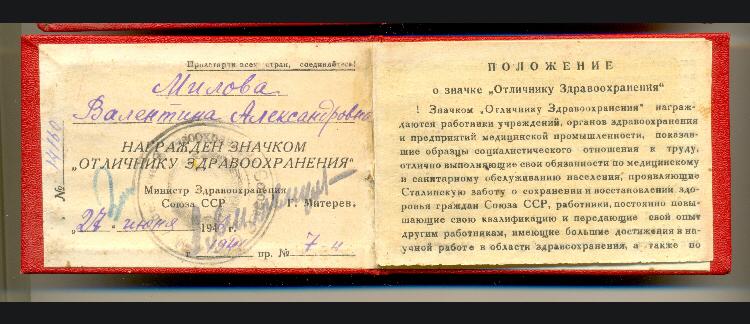 Пролетарии всех стран, соединяйтесь!
Милова
Валентина Александровна
НАГРАЖДЕН ЗНАЧКОМ
„ОТЛИЧНИКУ ЗДРАВООХРАНЕНИЯ“
Министр Здравоохранения
Союза ССР Г. Митерев.
„27“ июня 194
г. пр. № 7-н
№ 14160
ПОЛОЖЕНИЕ
о значке „Отличнику Здравоохранения“
1 Значком „Отличнику Здравоохранения“ награж-
даются работники учреждений, органов здравоохранения
и предприятий медицинской промышленности, показав-
шие образцы социалистического отношения к труду,
отлично выполняющие свои обязанности по медицинскому
и санитарному обслуживанию населения, проявляющие
Сталинскую заботу о сохранении и восстановлении здо-
ровья граждан Союза ССР, работники, постоянно повы-
шающие свою квалификацию и передающие свой опыт
другим работникам, имеющие большие достижения в на-
учной работе в области здравсохранения, а также по